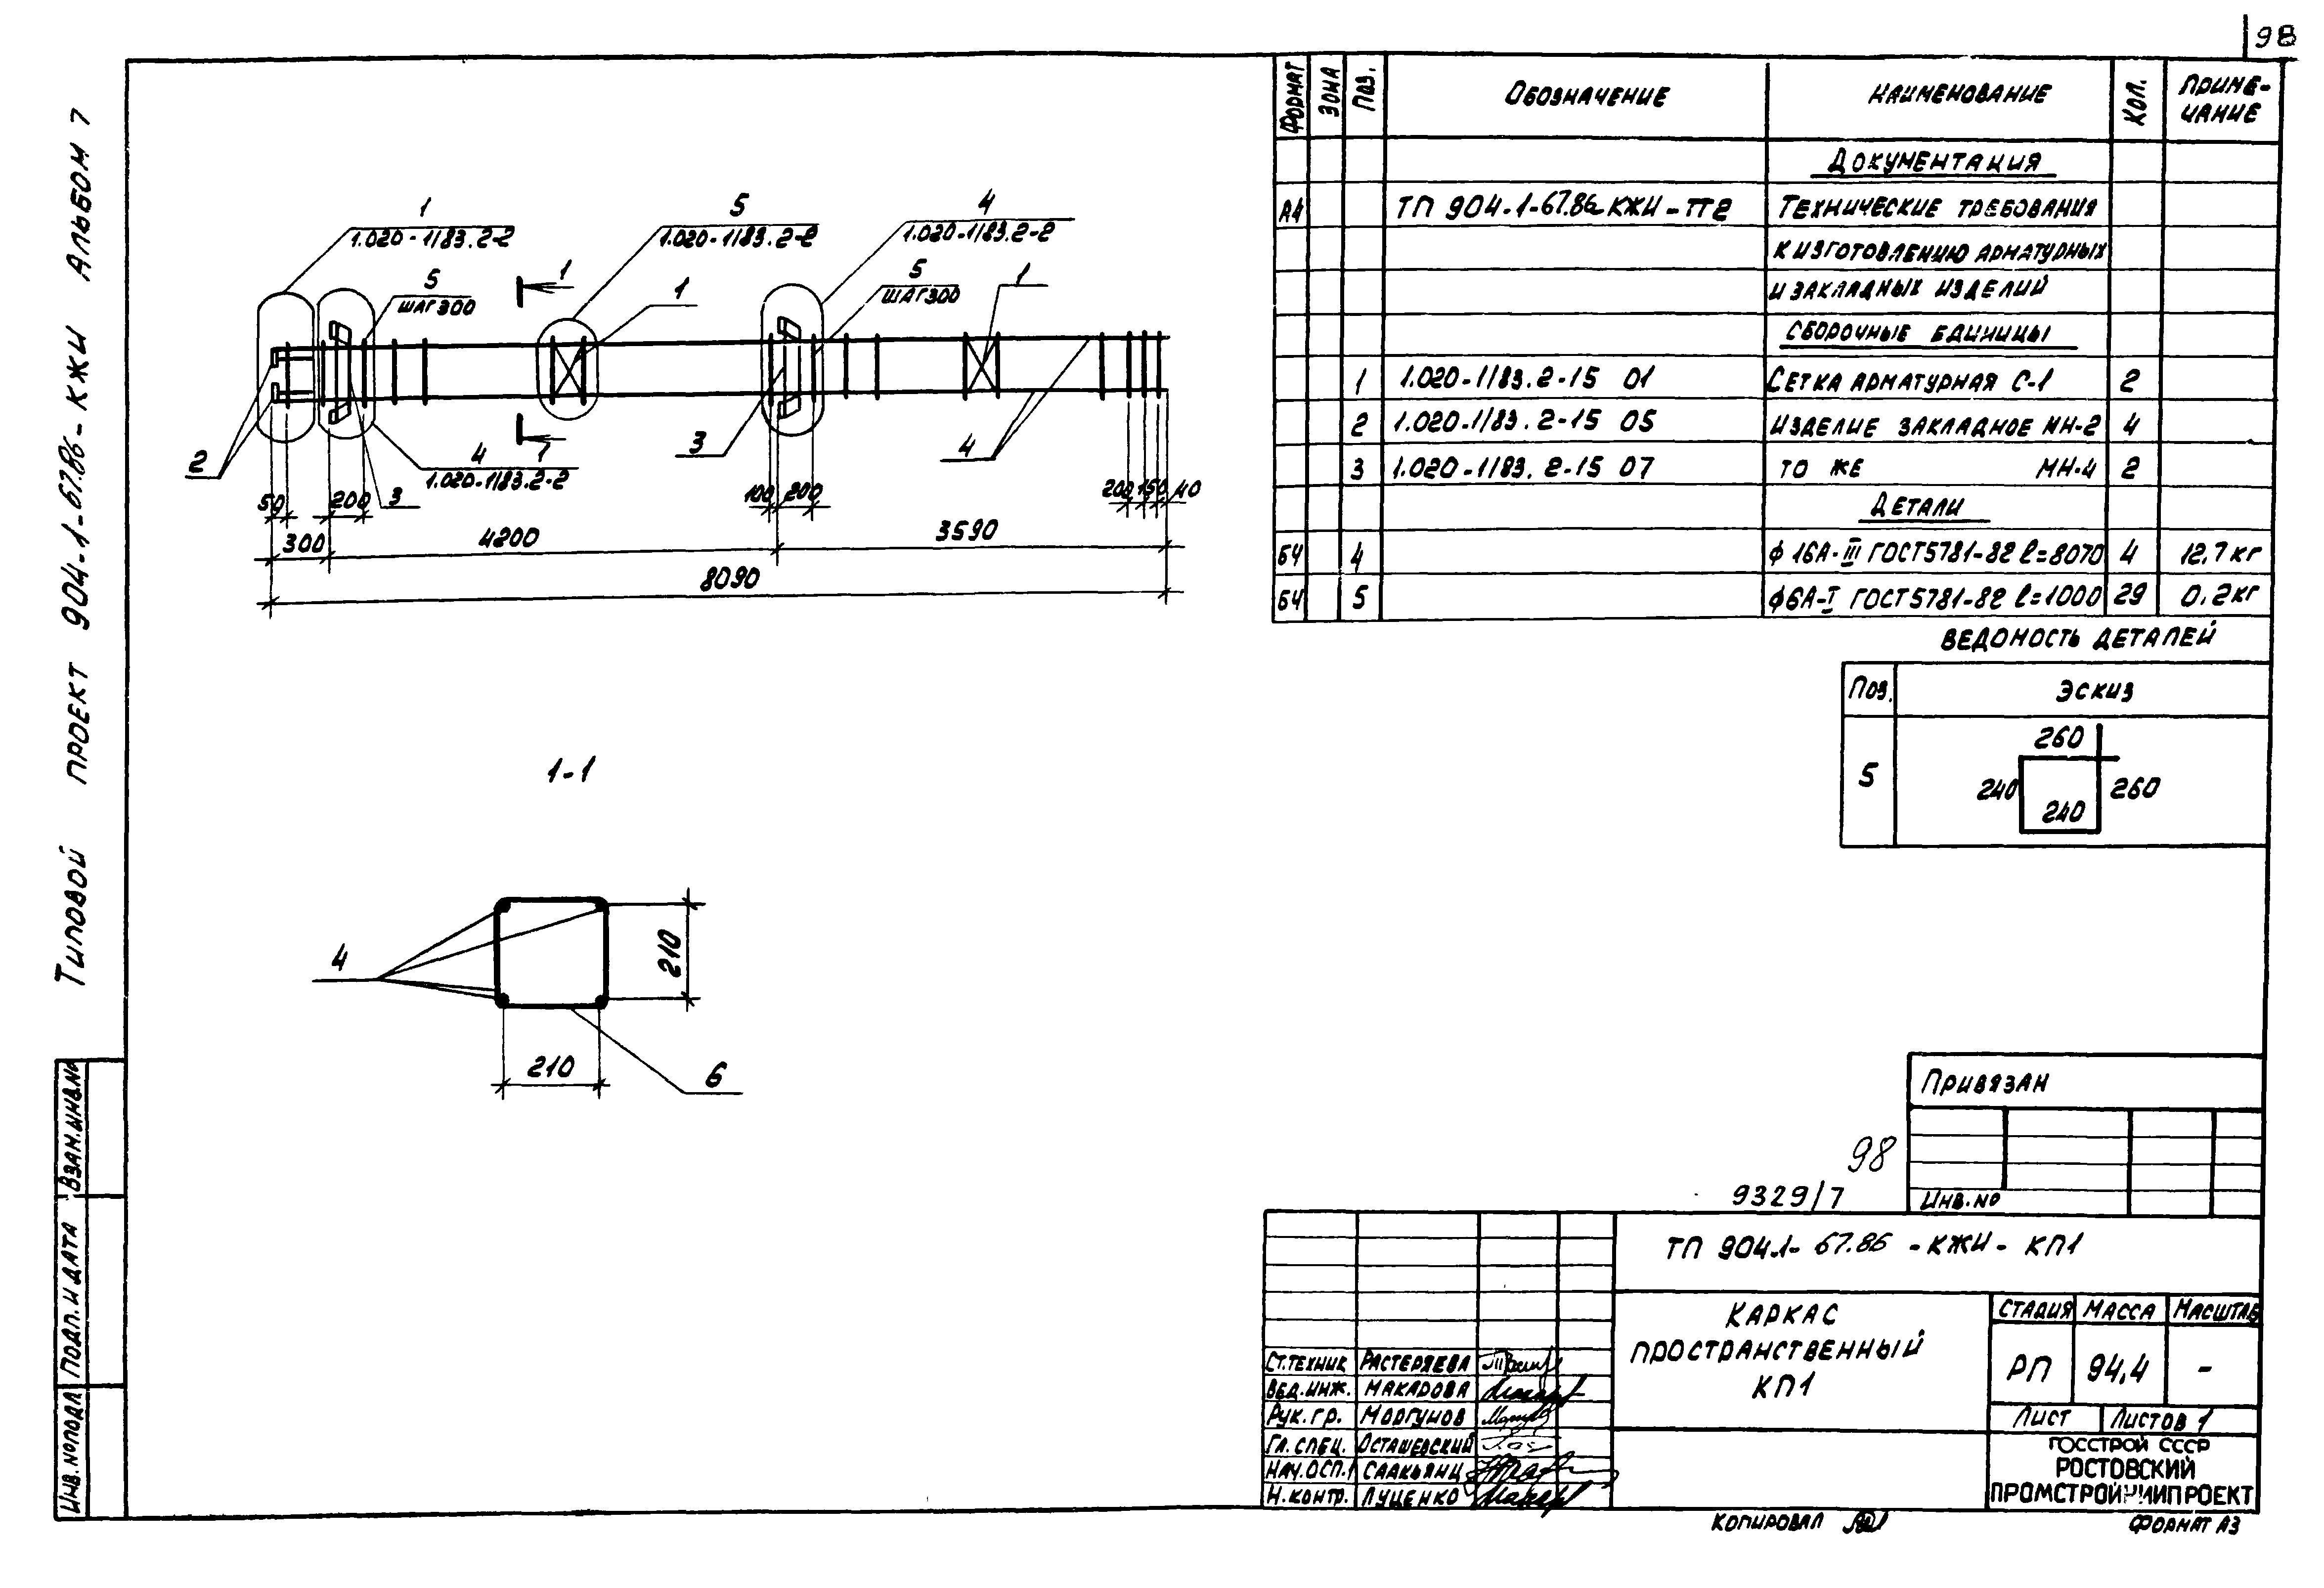 98
Типовой проект 904-1-67.86-КЖИ Альбом 7
1
1.020-1/83.2-2
5
1.020-1/83.2-2
4
1.020-1/83.2-2
5
шаг 300
1
1
5
шаг 300
1
2
4
1.020-1/83.2-2
1
3
3
4
50
200
100
200
200
150
40
300
4200
3590
8090
1-1
4
210
210
6
Формат Зона Поз. Обозначение Наименование Кол. Приме-
чание
Документация
А4 ТП 904-1-67.86 КЖИ-ТТ2 Технические требования
к изготовлению арматурных
и закладных изделий
Сборочные единицы
1 1.020-1/83.2-15 01 Сетка арматурная С-1 2
2 1.020-1/83.2-15 05 Изделие закладное МН-2 4
3 1.020-1/83.2-15 07 То же МН-4 2
Детали
БЧ 4 ф 16А-III ГОСТ 5781-82 l=8070 4 12.7 кг
БЧ 5 ф6А-I ГОСТ 5781-82 l=1000 29 0.2 кг
Ведомость деталей
Поз. Эскиз
5
260
240
260
240
Привязан
Инв.No
98
9329/7
ТП 904.1-67.86-КЖИ-КП1
Каркас
пространственный
КП1
Стадия Масса Масштаб
РП 94,4 -
Лист Листов 1
ГОССТРОЙ СССР
РОСТОВСКИЙ
ПРОМСТРОЙНИИПРОЕКТ
Ст.техник Растеряева
Вед.инж. Макарова
Рук.гр. Моргунов
Гл.спец. Осташевский
Нач.ОСП.1 Саакьянц
Н.контр. Луценко
Копировал
Формат А3
Взам.инв.No
Подп. и дата
Инв.No подл